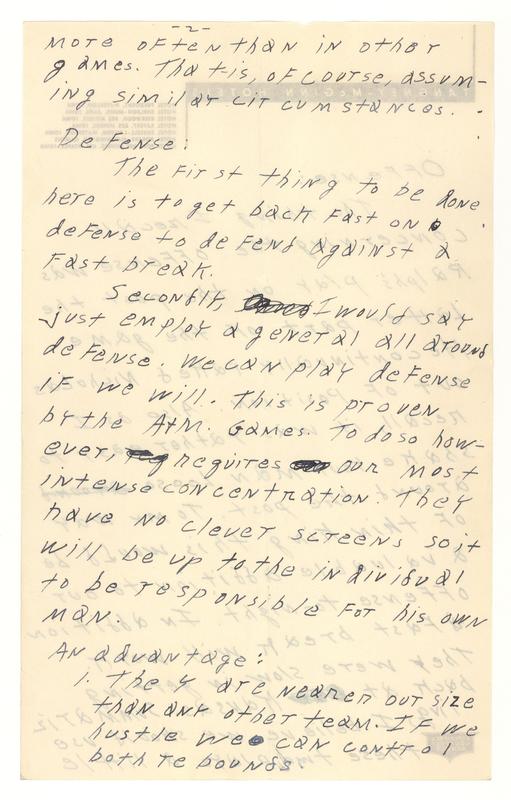 -2-
more often than in other
games. That is, of course, assum-
ing similar circumstances.
Defense:
The first thing to be done
here is to get back fast on
defense to defend against a
fast break.
Secondly, I would say
just employ a general all around
defense. We can play defense
if we will. This is proven
by the A+M. Games. To do so how-
ever, requires our most
intense concentration. They
have no clever screens so it
will be up to the individual
to be responsible for his own
man.
An advantage:
1. They are nearer our size
than any other team. If we
hustle we can control
both rebounds.